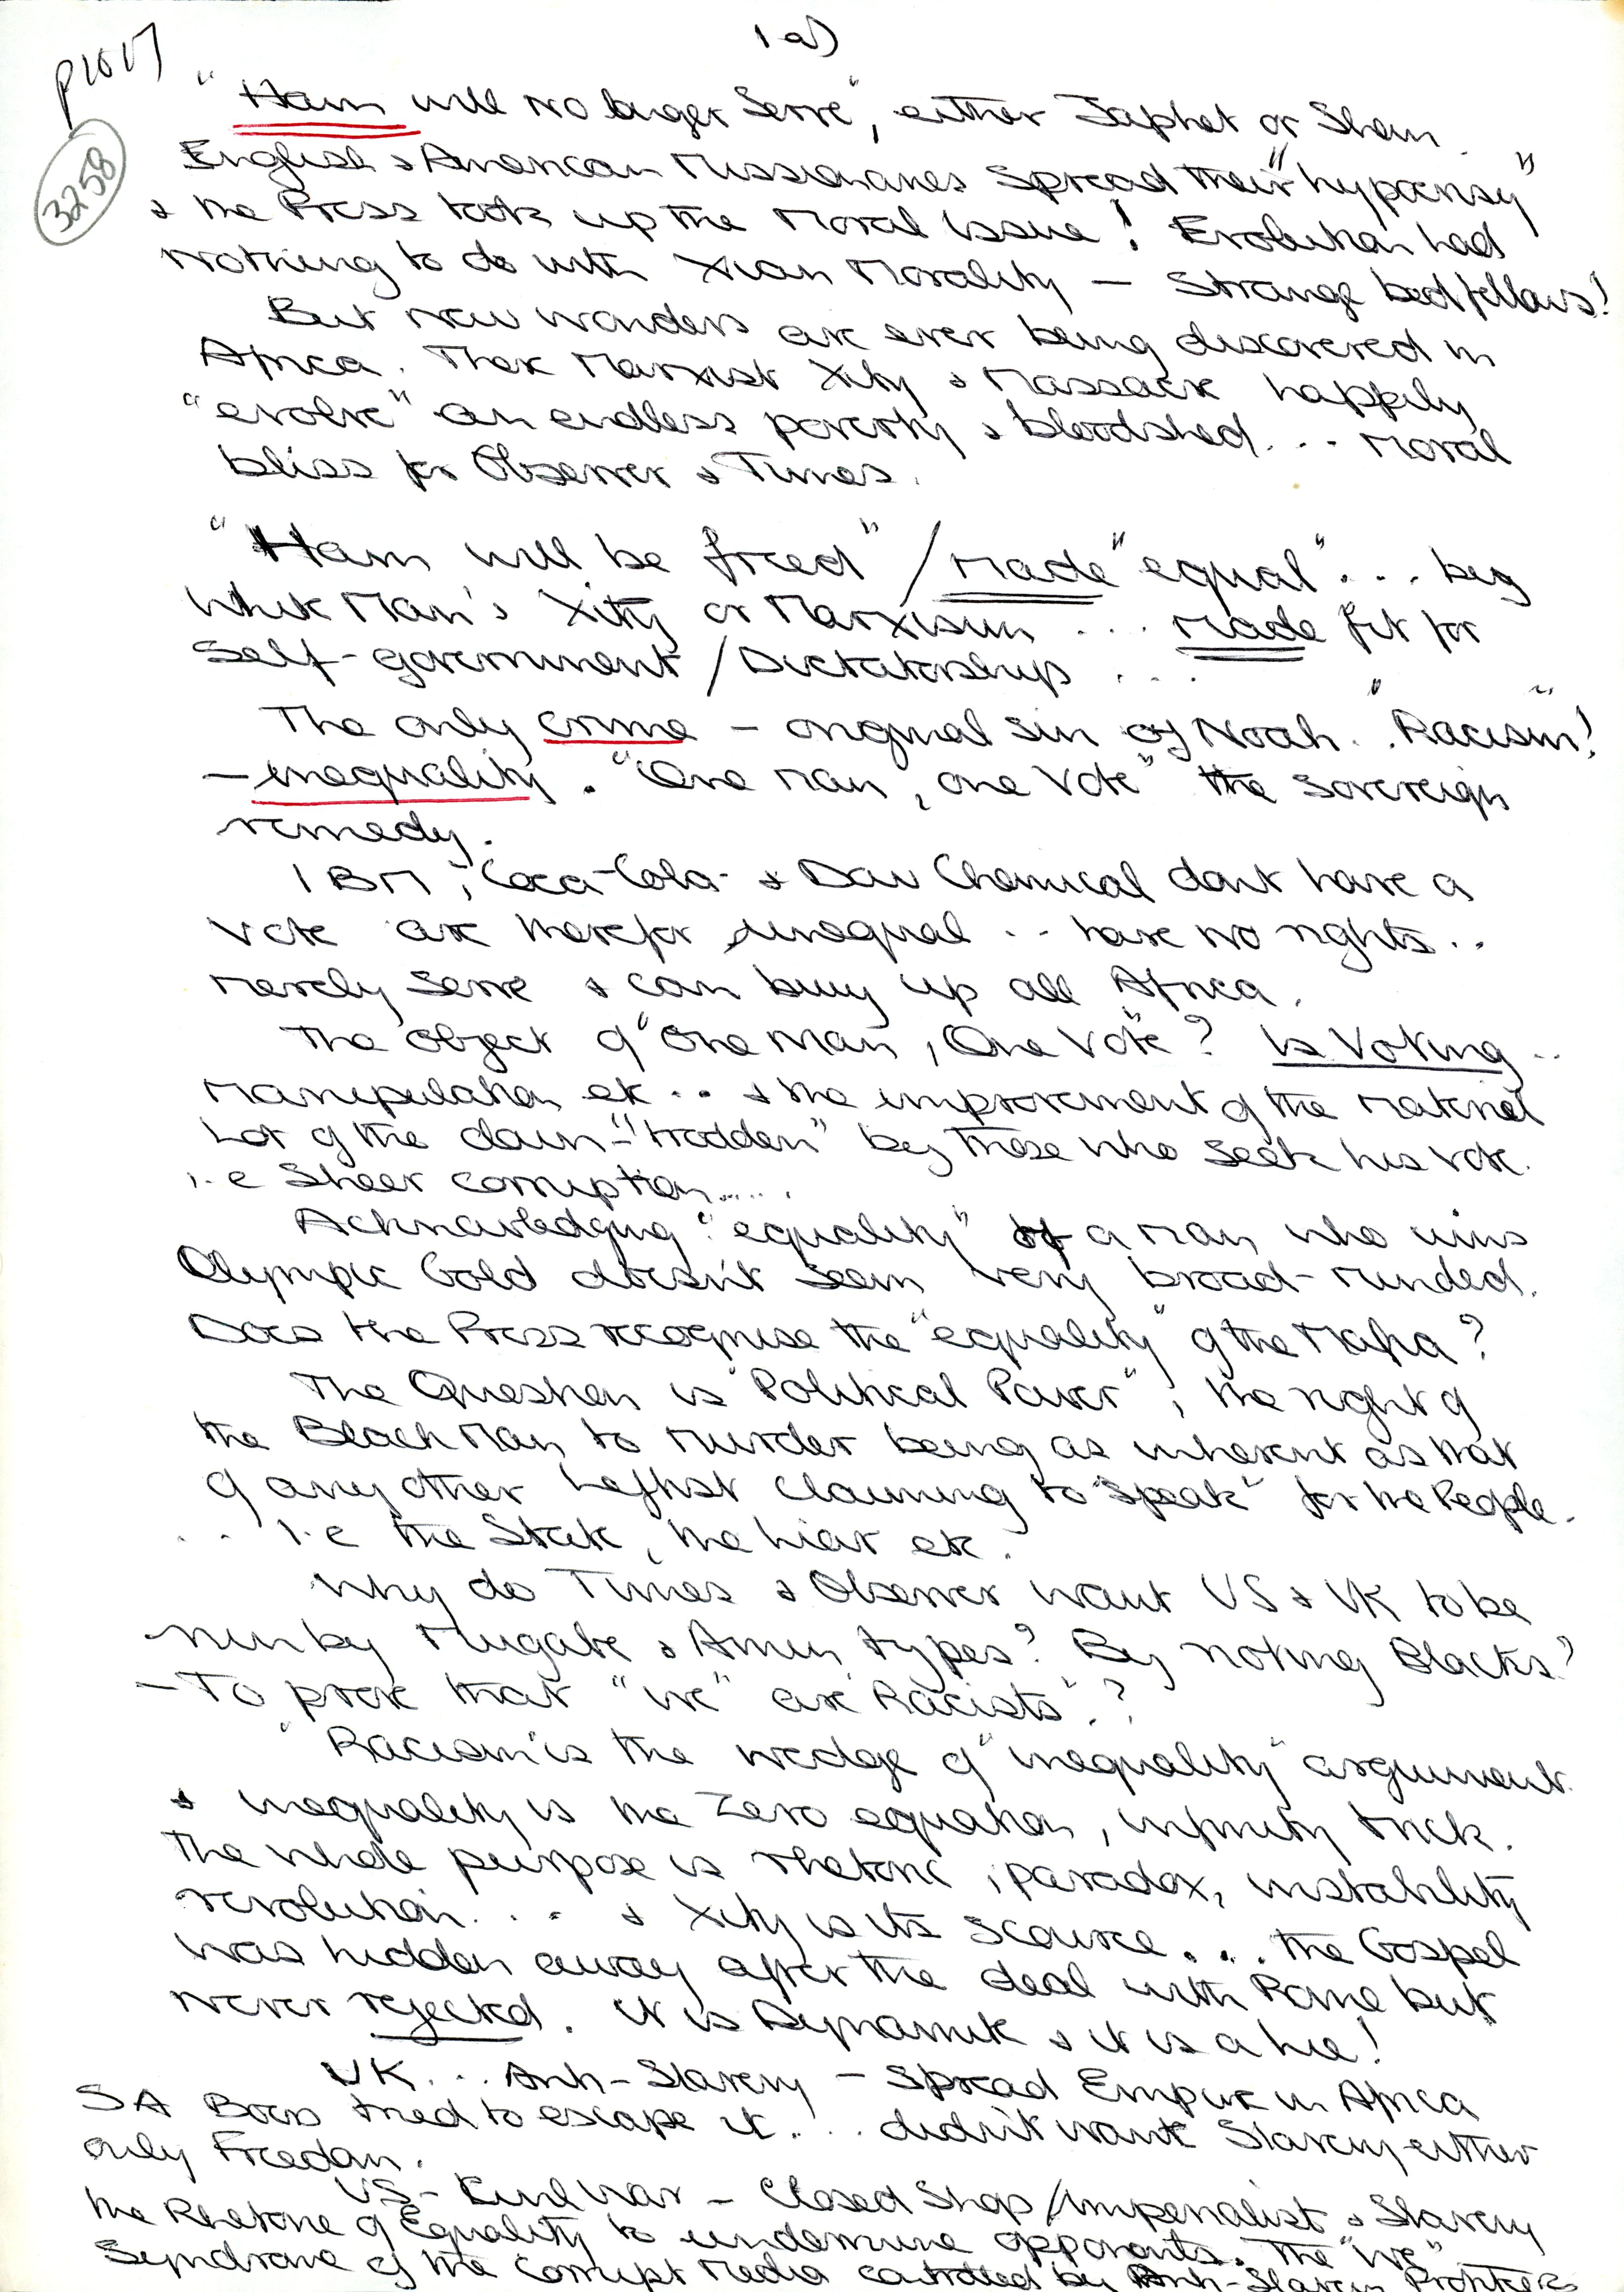 1 a)
P1017
3258
"Ham will no longer Serve", either Japhet or Shem.
English & American Missionaries Spread their "hypocrisy"
& the Press took up the Moral Issue! Evolution had
nothing to do with Xian Morality — Strange bedfellows!
But new wonders are ever being discovered in
Africa. There Marxist Xity & Massacre happily
"evolve" on endless poverty & bloodshed... Moral
bliss for Observer & Times.
"Ham will be freed" / Made "equal"... by
White Man's Xity or Marxism ... Made fit for
Self-government / Dictatorship ...
The only crime — original sin of Noah.. "Racism"!
— inequality. "One Man, one Vote" the sovereign
remedy.
IBM, Coca-Cola & Dow Chemical don't have a
Vote are therefor unequal .. have no rights..
Merely Serve & can buy up all Africa.
The object of "One Man, One Vote"? Is Voting..
Manipulation etc .. & the improvement of the material
Lot of the down-"trodden" by those who Seek his vote.
i.e Sheer corruption.....
Acknowledging "equality" of a man who wins
Olympic Gold doesn't seem very broad-minded.
Does the Press recognise the "equality" of the Mafia?
The Question is "Political Power", the right of
the Black Man to Murder being as inherent as that
of any other Leftist claiming to "Speak" for the People.
.. i.e the State, the Liar etc.
Why do Times & Observer want US & UK to be
run by Mugabe & Amin types? By noting Blacks?
— To prove that "we" are "Racists".?
"Racism" is the wedge of "inequality" argument.
& inequality is the Zero equation, infinity trick.
The whole purpose is rhetoric, paradox, instability
revolution... & Xity is its source... the Gospel
was hidden away after the deal with Rome but
never rejected. It is Dynamite & it is a lie!
UK... Anti-Slavery — Spread Empire in Africa
SA Boers tried to escape it... didn't want Slavery either
only Freedom.
US — Civil War — Closed Shop / Imperialist & Slavery
the Rhetoric of Equality to undermine opponents. The "We"
Syndrome of the Corrupt Media controlled by Anti-Slavery Profiteers